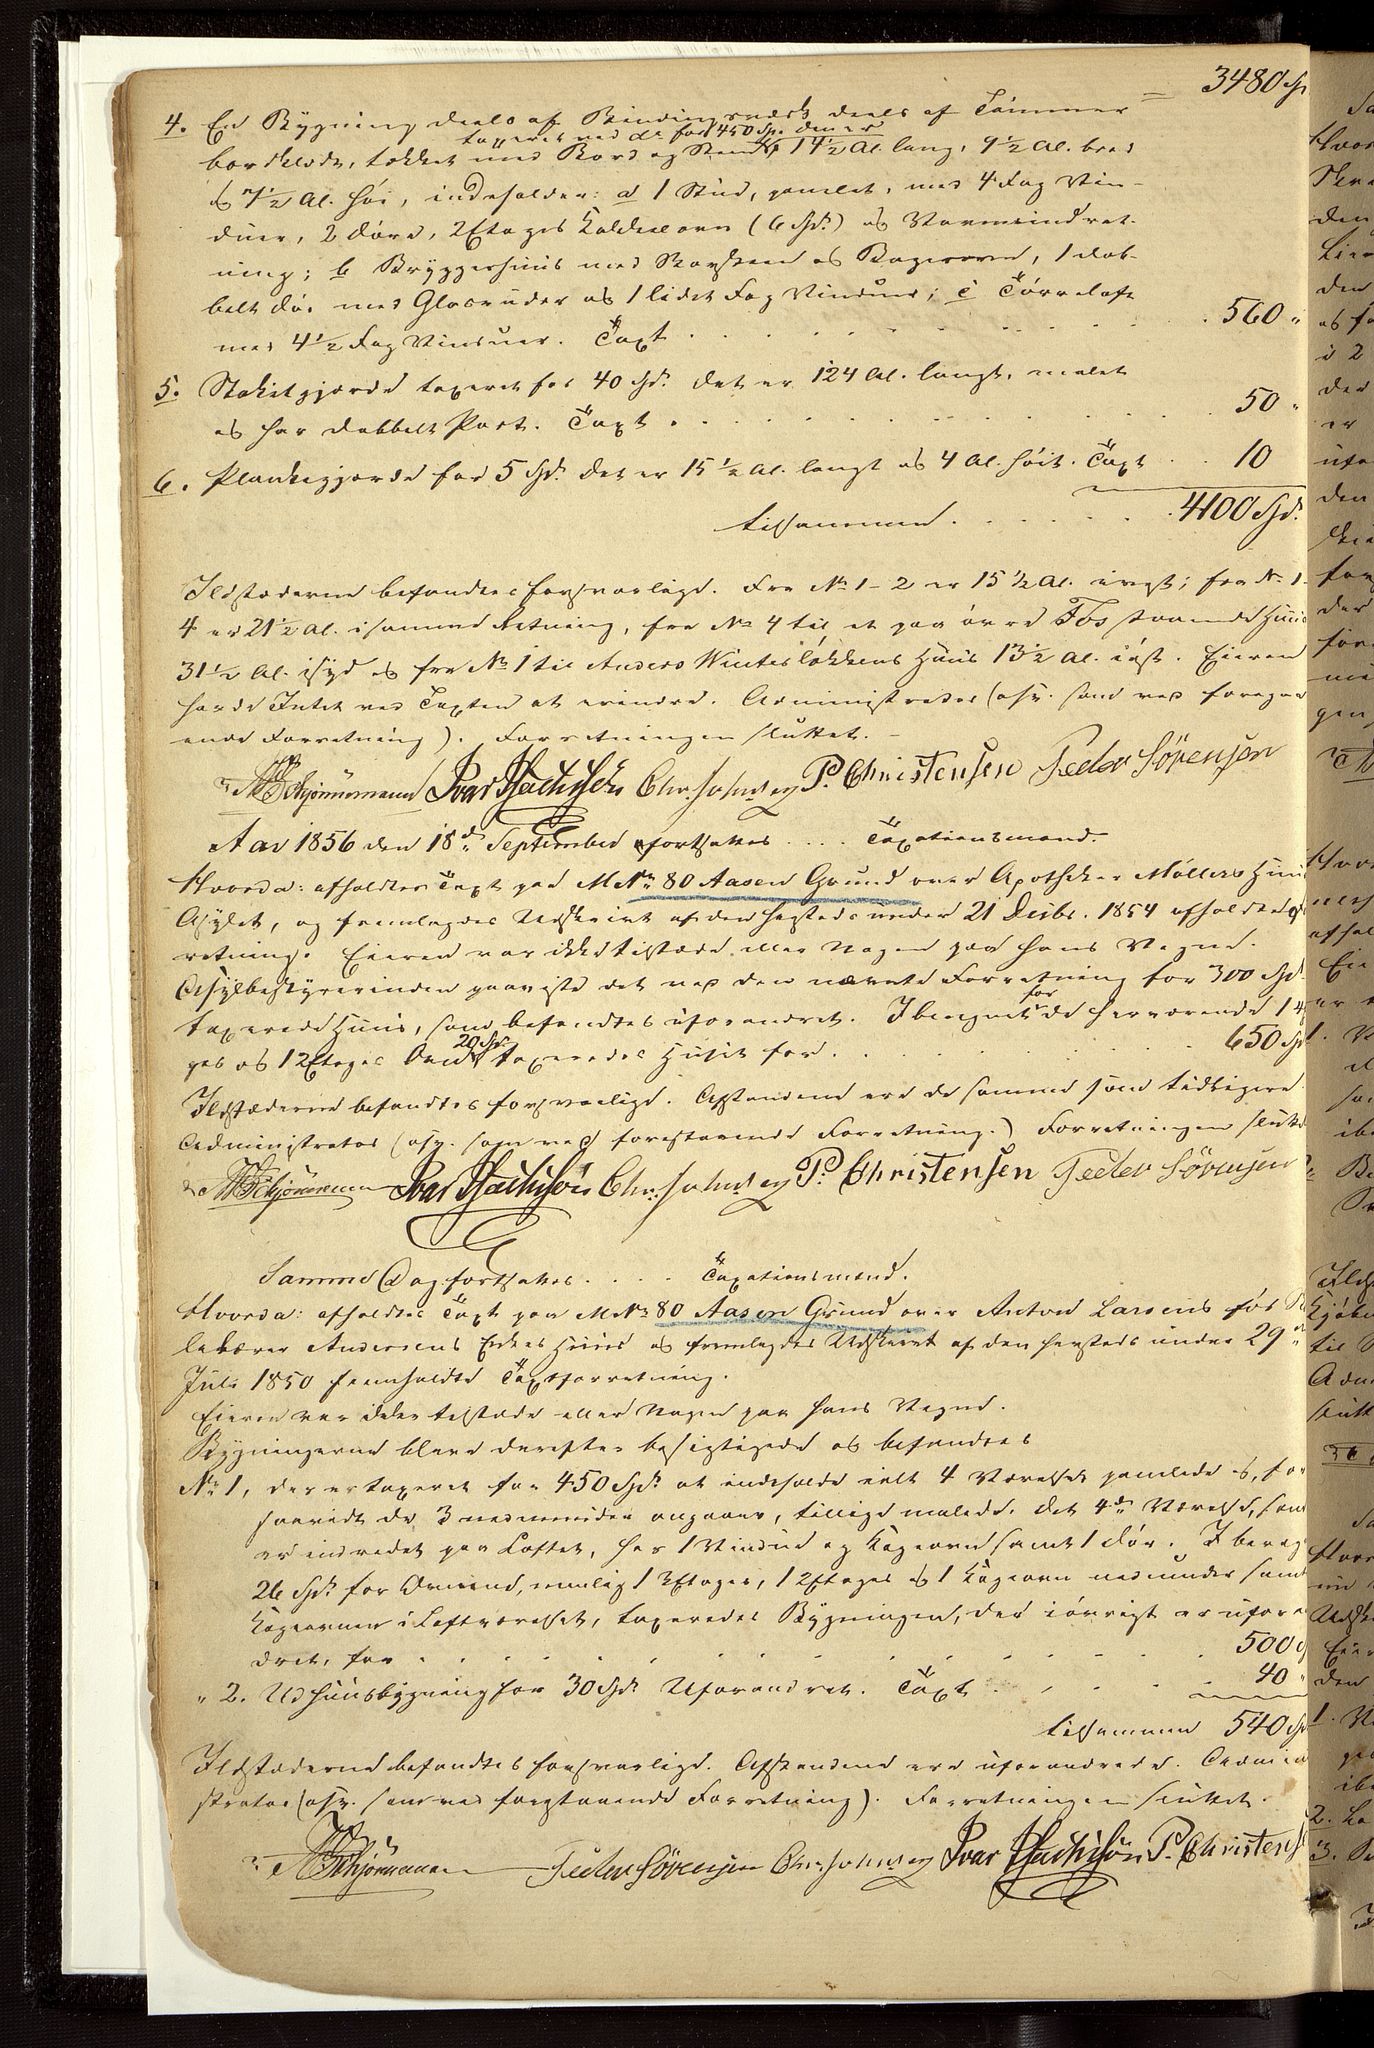 3480 Sp
4. En Bygning deels af Bindingsværk deels af Tømmer
taxeret ved do for 450 Sp. den er
bordklædt, tækket med Bord og Steen 14½ Al. lang, 9½ Al. bred
og 7½ Al. høi, indeholder: a 1 Stue, panelet, med 4 Fag Vin-
duer, 2 Døre, 2Etages Kakkelovn (6 Spd.) og Varmeindret-
ning; b Bryggerhuus med Skorsteen og Bagerovn, 1 dob-
belt Dør med Glasruder og 1 lidet Fag Vindue; c Tørreloft
med 4½ Fag Vinduer. Taxt . . . 560 "
5. Stakitgjærde taxeret for 40 Spd. det er 124 Al. langt, malet
og har dobbelt Port. Taxt . . . 50 "
6. Plankegjærde for 5 Spd. det er 15½ Al. langt og 4 Al. høit. Taxt . . 10
tilsammen . . . 4100 Spd.
Ildstæderne befandtes forsvarlige. Fra No 1-2 er 15½ Al. i vest; fra No 1-
4 er 21½ Al. i samme Retning, fra No 4 til et paa øvre Fos staaende Huus
31½ Al. i syd og fra No 1 til Anders Winterløkkens Huus 13½ Al. i øst. Eieren
havde Intet ved Taxten at erindre. Administrator (osv. som ved foregaa-
ende Forretning). Forretningen sluttet. -
Schjønnemann Ivar Chr. Johnsen P. Christensen Peder Sörensen
Aar 1856 den 18de September fortsattes . . . . Taxationsmænd.
Hvorda: afholdtes Taxt paa MNo 80 Aasen Grund over Apotheker Møllers Huus
Asylet, og fremlagdes Udskrivt af den hersteds under 21 Decbr. 1854 afholdte
retning. Eieren var ikke tilstede eller Nogen paa hans Vegne.
Asylbestyrerinden paaviste det ved den nævnte Forretning for 300 Spd.
taxerede Huus, som befandtes uforandret. Iberegnet de herværende 1 4
for
ges og 1 2Etages Ovne 20 Sp. taxeredes Huset for . . . 650 Sp
Ildstæderne befandtes forsvarlige. Afstandene ere de samme som tidligere.
Administrator (osv. som ved forestaaende Forretning.) Forretningen slutt
Schjønnemann Ivar Chr. Johnsen P. Christensen Peder Sörensen
Samme Dag fortsattes . . . . Taxationsmænd.
Hvorda: afholdtes Taxt paa MNo 80 Aasen Grund over Anton Larsens før
Andersens Enkes Huus og fremlagdes Udskrivt af den hersteds under 29de
Juli 1850 fremholdte Taxtforretning.
Eieren var ikke tilstede eller Nogen paa hans Vegne.
Bygningerne bleve derefter besigtigede og befandtes
No 1, der er taxeret for 450 Spd. at indeholde ialt 4 Værelser panelede og, for
saavidt de 3 nedenunder angaaer, tillige malede. Det 4de Værelse, som
er indredet paa Loftet, har 1 Vindue og Kogeovn samt 1 Dør. Ibereg
26 Spd. for Ovnene, nemlig 1 3Etages, 1 2Etages og 1 Kogeovn nedenunder samt
Kogeovnen i Loftværelset, taxeredes Bygningen, der iøvrigt er uforan
dret, for . . . 500
" 2. Udhuusbygning for 30 Spd. Uforandret. Taxt . . . 40 "
tilsammen 540 Sp
Ildstæderne befandtes forsvarlige. Afstandene ere uforandrede. Admini
strator (osv. som ved forestaaende Forretning). Forretningen sluttet.
Schjønnemann Peder Sörensen Chr. Johnsen Ivar P. Christens